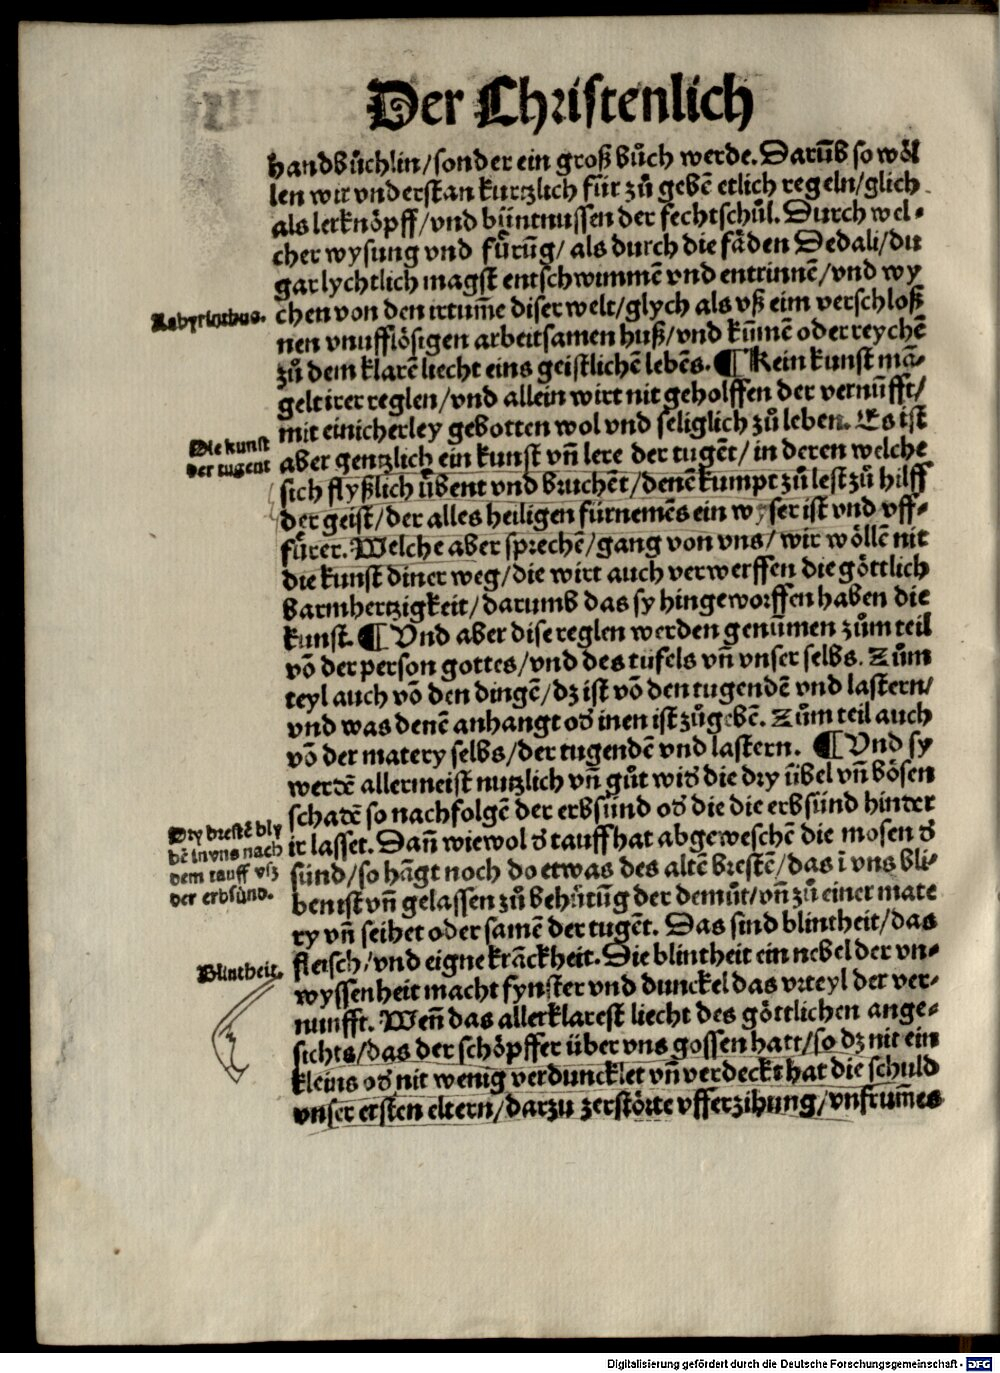 Der Christenlich
handbůchlin/sonder ein groß bůch werde. Darūb so wöl
len wir vnderstan kurtzlich für zů gebē etlich regeln/glich
als lerknöpff/vnd büntnussen der fechtschůl. Durch wel⸗
cher wysung vnd fůrūg/als durch die fäden Dedali/du
gar lychtlich magst entschwimmē vnd entrinnē/vnd wy
Labyrinthus.
chen von den irtum̄e diser welt/glych als vß eim verschloß
nen vnufflösigen arbeitsamen huß/vnd kum̄ē oder reychē
zů dem klarē liecht eins geistlichē lebēs. ¶ Kein kunst mā⸗
gelt irer reglen/vnd allein wirt nit geholffen der vernūfft/
mit einicherley gebotten wol vnd seliglich zů leben. Es ist
Die kunst
der tugent
aber gentzlich ein kunst vn̄ lere der tugēt/in deren welche
sich flyßlich ůbent vnd bruchēt/denē kumpt zů lest zů hilff
der geist/der alles heiligen fürnemēs ein wyser ist vnd vff⸗
fůrer. Welche aber sprechē/gang von vns/wir wöllē nit
die kunst diner weg/die wirt auch verwerffen die göttlich
barmhertzigkeit/darumb das sy hingeworffen haben die
kunst. ¶ Vnd aber dise reglen werden genūmen zům teil
vō der person gottes/vnd des tüfels vn̄ vnser selbs. Zům
teyl auch vō den dingē/dz ist vō den tugendē vnd lastern/
vnd was denē anhangt od' inen ist zůgebē. Zům teil auch
vō der matery selbs/der tugendē vnd lastern. ¶ Vnd sy
werdē allermeist nutzlich vn̄ gůt wid' die dry übel vn̄ bösen
schadē so nachfolgē der erbsünd od' die die erbsünd hinder
Dry brestē bly
bē in vns nach
dem tauff vß
der erbsünd.
ir lasset. Dan̄ wiewol d' tauff hat abgeweschē die mosen d'
sünd/so hāgt noch do etwas des altē brestē/das ī vns bli⸗
ben ist vn̄ gelassen zů behůtūg der demůt/vn̄ zů einer mate
ry vn̄ seihet oder samē der tugēt. Das sind blintheit/das
Blintheit.
fleisch/vnd eigne kräckheit. Die blintheit ein nebel der vn⸗
wyssenheit macht fynster vnd dunckel das vrteyl der ver⸗
nunfft. Wen̄ das allerklarest liecht des göttlichen ange⸗
sichts/das der schöpffer über vns gossen hatt/so dz nit ein
kleins od' nit wenig verduncklet vn̄ verdeckt hat die schuld
vnser ersten eltern/darzu zerstörte vfferzihung/vnfrum̄es
Digitalisierung gefördert durch die Deutsche Forschungsgemeinschaft - DFG